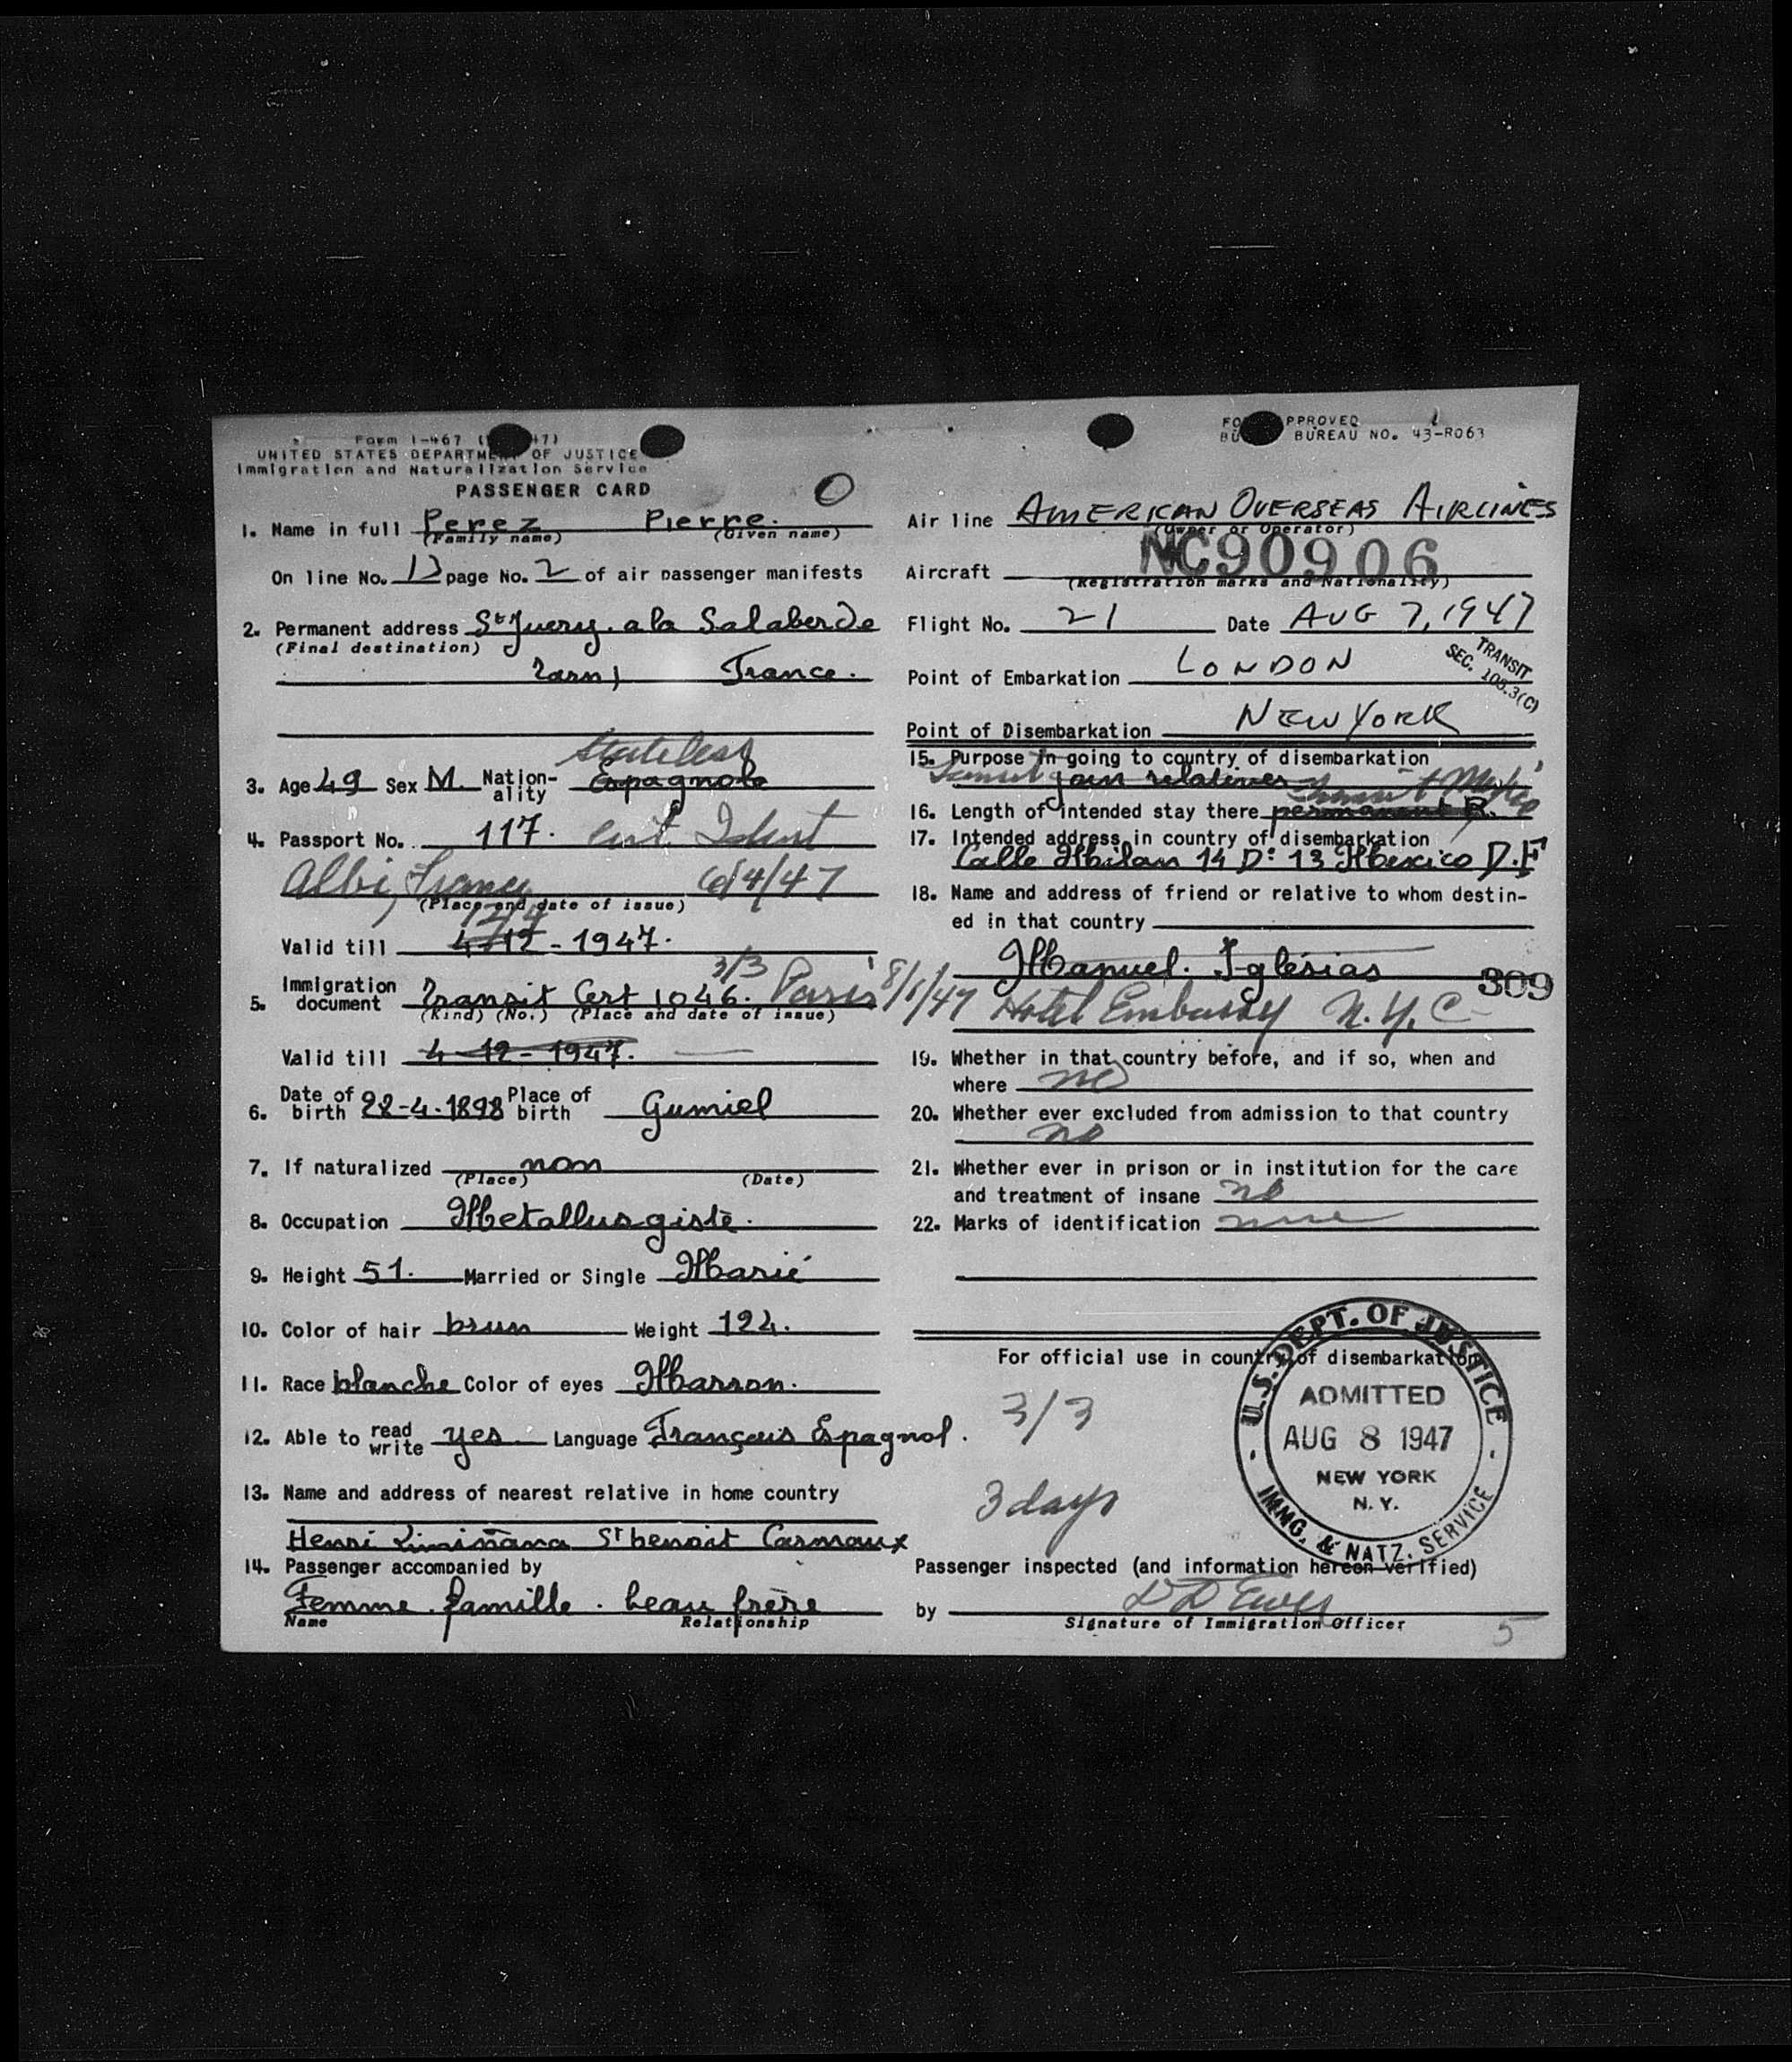 Form I-467 ( 47)
UNITED STATES DEPARTMENT OF JUSTICE
Immigration and Naturalization Service
PASSENGER CARD
O
FO PPROVED
BU BUREAU NO. 43-R063
1. Name in full Perez Pierre.
(Family name) (Given name)
On line No. 13 page No. 2 of air passenger manifests
2. Permanent address St Juery. a la Salaberde
(Final destination)
Tarn) France.
Stateless
3. Age 49 Sex M. Nation-ality Espagnole
4. Passport No. 117. cert. Ident
Albi, France 6/4/47
(Place and date of issue)
12/4
Valid till 4-12-1947.
3/3
5. Immigration document Transit Cert 1046. Paris 8/1/47
(Kind) (No.) (Place and date of issue)
Valid till 4-12-1947.
6. Date of birth 22-4-1898 Place of birth Gumiel
7. If naturalized non
(Place) (Date)
8. Occupation Metallurgiste.
9. Height 51. Married or Single Marié
10. Color of hair brun Weight 124.
11. Race blanche Color of eyes Marron.
12. Able to read write yes Language Français Espagnol.
13. Name and address of nearest relative in home country
Henri Liminana St benoit Carmaux
14. Passenger accompanied by
Femme. famille. beau frère
Name Relationship
Air line AMERICAN OVERSEAS AIRLINES
(Owner or Operator)
Aircraft NC90906
(Registration marks and Nationality)
Flight No. 21 Date AUG 7, 1947
Point of Embarkation LONDON
TRANSIT
SEC. 105.3(C)
Point of Disembarkation NEW YORK
15. Purpose in going to country of disembarkation
Transit join relatives transit Mexico
16. Length of intended stay there permanent R.
17. Intended address in country of disembarkation
Calle Milan 14 D: 13 Mexico D.F
18. Name and address of friend or relative to whom destin-
ed in that country
Manuel. Iglésias 309
Hotel Embassy N.Y.C
19. Whether in that country before, and if so, when and
where no
20. Whether ever excluded from admission to that country
no
21. Whether ever in prison or in institution for the care
and treatment of insane no
22. Marks of identification none
For official use in country of disembarkation
3/3
3 days
U.S. DEPT. OF JUSTICE
ADMITTED
AUG 8 1947
NEW YORK
N. Y.
IMMG. & NATZ. SERVICE
Passenger inspected (and information hereon verified)
by
Signature of Immigration Officer
5